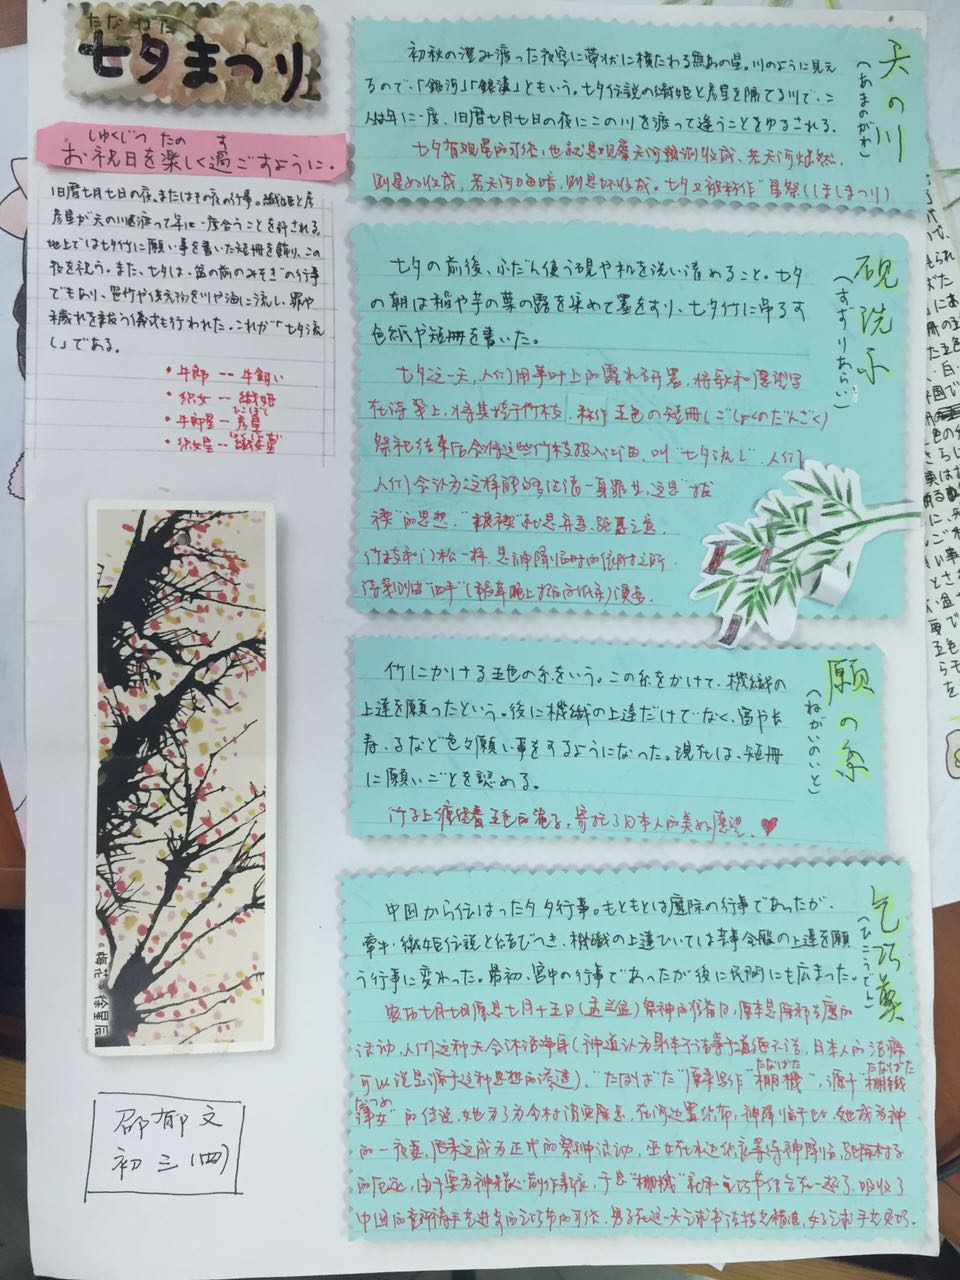 たなばた
七夕まつり
しゅくじつ たの す
お祝日を楽しく過ごすように。
旧暦七月七日の夜。またはその夜の行事。織姫と彦
彦星が天の川を渡って年に一度合うことを許される。
地上では七夕竹に願い事を書いた短冊を飾り、この
夜を祝う。また、七夕は、盆の前のみそぎの行事
でもあり、笹竹や供え物を川や海に流し、罪や
穢れを祓う儀式も行われた。これが「七夕流
し」である。
•牛郎 -- 牛飼い
•织女 -- 織姫
ひこぼし
•牛郎星 -- 彦星
•织女星 --
《梅花》徐星辰
邵郁文
初三(四)
天の川
(あまのがわ)
初秋の澄み渡った夜空に帯状に横たわる無数の星。川のように見え
るので、「銀河」「銀漢」ともいう。七夕伝説の織姫と彦星を隔てる川で、二
人は年に一度、旧暦七月七日の夜にこの川を渡って逢うことをゆるされる。
七夕有观星的习俗，也就是观察天河预测收成，若天河灿烂，
则是好收成，若天河昏暗，则是坏收成。七夕又被称作"星祭(ほしまつり)
硯洗い
(すずりあらい)
七夕の前後、ふだん使う硯や机を洗い清めること。七夕
の朝は稲や芋の葉の露を集めて墨をすり、七夕竹に吊るす
色紙や短冊を書いた。
七夕这一天，人们用芋叶上的露水磨墨，将歌和愿望写
在诗笺上，将其挂于竹枝，称作五色の短冊(ごしょくのたんざく)
祭祀结束后会将这些竹枝投入江海，叫"七夕流し"，人们
人们会认为这样能够洁净一身罪业，这是"祓
禊"的思想。
竹枝和门松一样，是神降临时的依附之所
願の糸
(ねがいのいと)
竹にかける五色の糸をいう。この糸をかけて、機織の
上達を願ったという。後に機織の上達だけでなく、富や長
寿、子など色々願い事をするようになった。現在は、短冊
に願いごとを認める。
竹子上缠绕着五色的绳子，寄托了日本人的美好愿望。
乞巧奠
(ひこうでん)
中国から伝はった夕夕行事。もともとは宮廷の行事であったが、
牽牛・織姫伝説と結びつき、機織の上達ひいては芸事全般の上達を願
う行事に変わった。最初、宮中の行事であったが後に民間にも広まった。
农历七月七日原是七月十五日(盂兰盆)祭神的准备日，原本是除邪去魔的
活动，人们这种天会沐浴净身(神道认为身体不洁等于道德不洁，日本人的洁癖
可以说是源于这种思想的渗透)，"たなばた"原本写作"棚機"，源于"棚機
たなばた たなばた
つめ
津女"的传说，她为了为全村消灾除恶，在河边置织布，神降临于此，她成为神
的一夜妻，后来这成为正式的祭神活动，巫女在水边织衣等待神降临，驱除村子
的厄运，由于要为神精心制作新衣，于是"棚機"就和乞巧节结合在一起了，吸收了